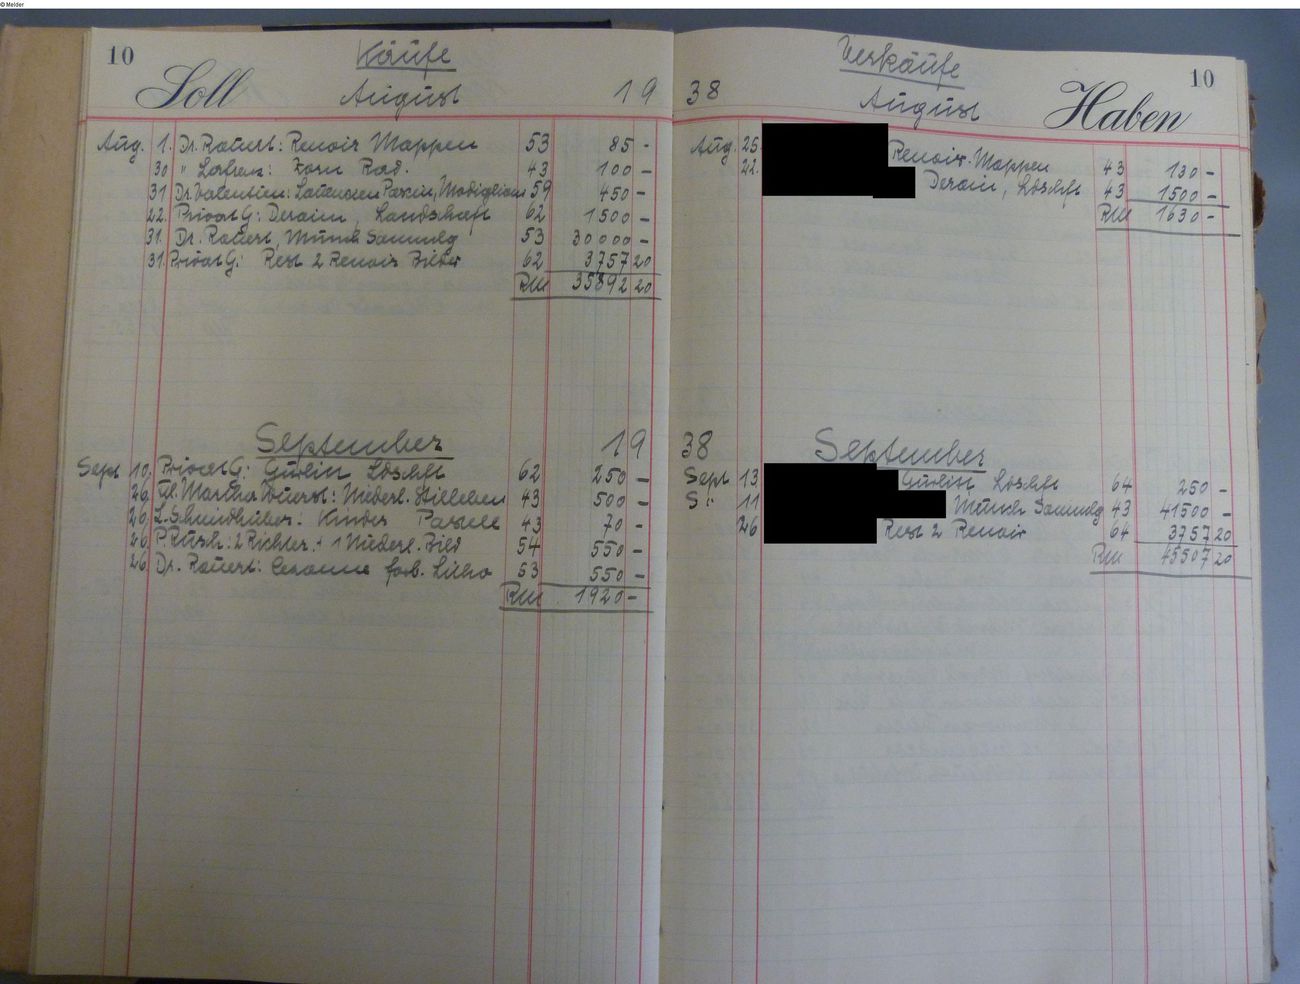 © Melder
10
Käufe
Soll
August
19
Aug. 1. Dr. Rauert: Renoir Mappen 53 85 -
30 " Lorenz: Zorn Rad. 43 100 -
31 Dr. Valentien: Pascin, Modigliani 59 450 -
22. Privat G: Derain, Landschaft 62 1500 -
31. Dr. Rauert, Munch Sammlg 53 30000 -
31. Privat G: Rest 2 Renoir Bilder 62 3757 20
RM 35892 20
September 19
Sept 10. Privat G: Gurlitt 62 250 -
26. Martha Rauert: Niederl. Stilleben 43 500 -
26. L. Schmidhuber: Kinder 43 70 -
26 P. Rusch: 2 Richter + 1 Niederl. Bild 54 550 -
26 Dr. Rauert: Cezanne farb. Litho 53 550 -
RM 1920 -
10
Verkäufe
38
August
Haben
Aug. 25. Renoir. Mappen 43 130 -
22. Derain, Ldschft 43 1500 -
RM 1630 -
38 September
Sept 13 Gurlitt Ldschft 64 250 -
11 Munch Sammlg 43 41500 -
26 Rest 2 Renoir 64 3757 20
RM 45507 20